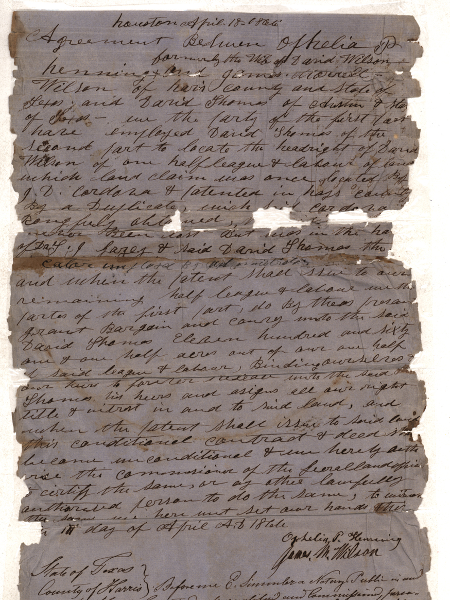 Houston April 18 1866
Agreement Between Ophelia P
formerly the Wife of David Wilson
Henning and James Morrell
Wilson of Haris county and State of
Texas, and David Thomas of Austin & State
of Texas — we the party of the first part
have employed David Thomas of the
second part to locate the headright of David
Wilson of one half league & labour of land
which land claim was once located by
J. D. Cordova & patented in hays county
By a Duplicate which said Cordova
rongfully obtained,
when been lost But was in the ha
& said David Thomas the
and when the patent shall issue to our
remaining half league & labour we the
partes of the first part, do By thees presan
grant Bargain and convey unto the said
David Thomas Eleven hundred and sixty
one & one half acres out of our one half
of said league & labour, Binding ourselves
our heirs to forever unto the said
Thomas his heirs and asigns all our right
title & intrest in and to said land, and
when the patent shall issue to said land
this conditional contract & deed shall
become unconditional & we hereby autho
rise the commissioned of the general land office
to certify the same, or any other lawfully
authorised person to do the same, to witness
the same we here unt set our hands this
18 day of April AD 1866
Ophelia P. Henning
James M Wilson
State of Texas
County of Harris Before me E. a Notary Public in and